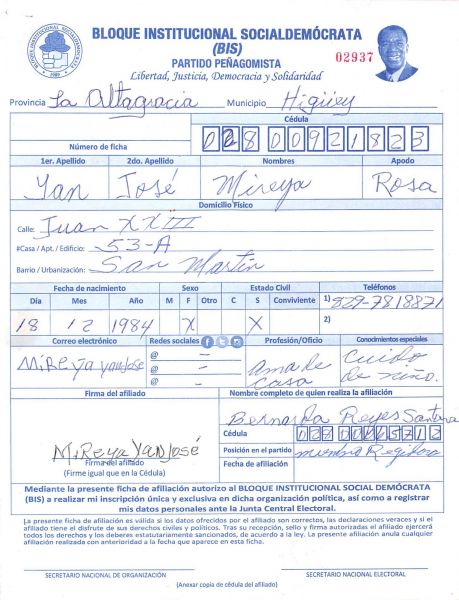 BLOQUE INSTITUCIONAL SOCIALDEMÓCRATA
(BIS)
PARTIDO PEÑAGOMISTA
Libertad, Justicia, Democracia y Solidaridad
02937
Provincia La Altagracia Municipio Higüey
Número de ficha
Cédula
02800921823
1er. Apellido 2do. Apellido Nombres Apodo
Yan José Mireya Rosa
Domicilio Físico
Calle: Juan XXIII
#Casa / Apt. / Edificio: 53-A
Barrio / Urbanización: San Martin
Fecha de nacimiento Sexo Estado Civil Teléfonos
Día Mes Año M F Otro C S Conviviente 1) 829-7818871
18 12 1984 X X 2)
Correo electrónico Redes sociales Profesión/Oficio Conocimientos especiales
Mireya yan José @ – ama de casa Cuido de niño.
@ –
@ –
Firma del afiliado Nombre completo de quien realiza la afiliación
Bernarda Reyes Santana
Cédula
MiReya Yan José
Posición en el partido miembro
Firma del afiliado
(Firme igual que en la Cédula)
Fecha de afiliación
Mediante la presente ficha de afiliación autorizo al BLOQUE INSTITUCIONAL SOCIAL DEMÓCRATA
(BIS) a realizar mi inscripción única y exclusiva en dicha organización política, así como a registrar
mis datos personales ante la Junta Central Electoral.
La presente ficha de afiliación es válida si los datos ofrecidos por el afiliado son correctos, las declaraciones veraces y si el
afiliado tiene el disfrute de sus derechos civiles y políticos. Tras su recepción, sello y firma autorizadas el afiliado ejercerá
todos los derechos y los deberes estatutariamente sancionados, de acuerdo a la ley. La presente afiliación anula cualquier
afiliación realizada con anterioridad a la fecha que aparece en esta ficha.
SECRETARIO NACIONAL DE ORGANIZACIÓN SECRETARIO NACIONAL ELECTORAL
(Anexar copia de cédula del afiliado)